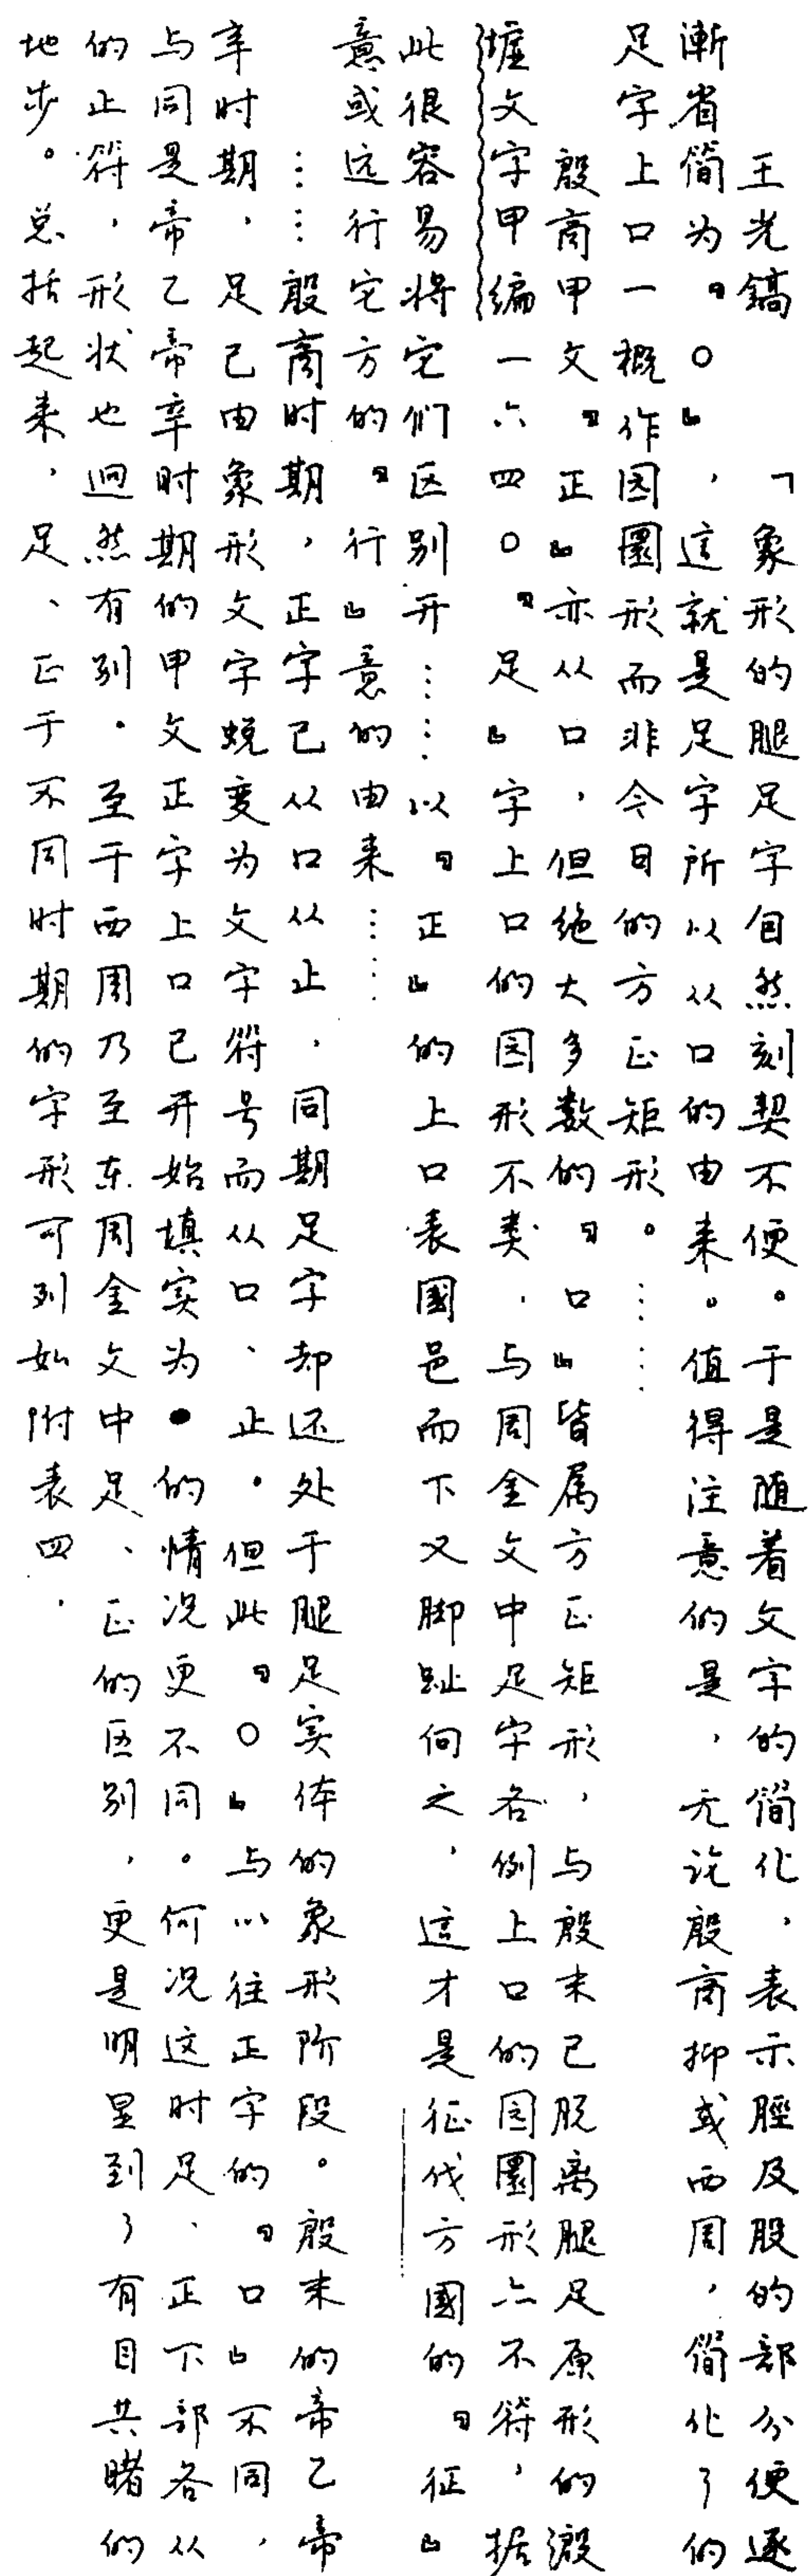 王光鎬　「象形的腿足字自然刻契不便。于是随着文字的簡化，表示脛及股的部分便逐
漸省簡为『〇』，這就是足字所以从口的由来。值得注意的是，无论殷商抑或西周，簡化了的
足字上口一概作园圜形而非今日的方正矩形。……
殷商甲文『正』亦从口，但绝大多数的『口』皆属方正矩形，与殷末已脱离腿足原形的
墟文字甲编一六四〇『足』字上口的园形不类，与周金文中足字各例上口的园圜形亦不符，据
此很容易将它们区别开……以『正』的上口表國邑而下又脚趾向之，這才是征伐方國的『征』
意或远行它方的『行』意的由来……
……殷商时期，正字已从口从止，同期足字却还处于腿足实体的象形阶段。殷末的帝乙帝
辛时期，足已由象形文字蜕变为文字符号而从口、止。但此『〇』与以往正字的『口』不同，
与同是帝乙帝辛时期的甲文正字上口已开始填实为●的情况更不同。何况这时足、正下部各从
的止符，形状也迥然有别。至于西周乃至东周金文中足、正的区别，更是明显到了有目共睹的
地步。总括起来，足、正于不同时期的字形可列如附表四，